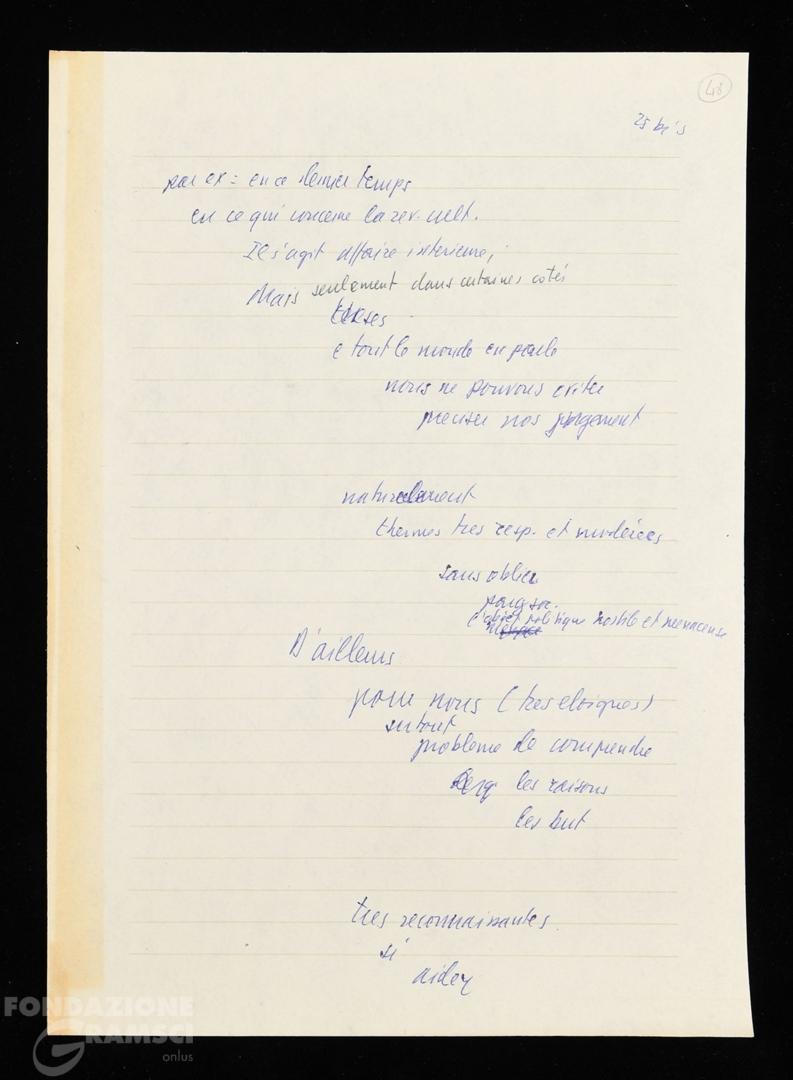 48
25 bis
par ex = en ce dernier temps
en ce qui concerne la rev. cult.
Il s'agit affaire interieure,
Mais seulement dans certaines cotés
theses
e tout le monde en parle
nous ne pouvons eviter
preciser nos jugement
naturellement
thermes tres resp. et moderées
sans oblier
pays soc.
l'objet politique hostile et menaceuse
D'ailleurs
pour nous (tres eloignes)
surtout
probleme de comprendre
les raisons
les but
tres reconnaissantes
si
aidez
FONDAZIONE
GRAMSCI
onlus